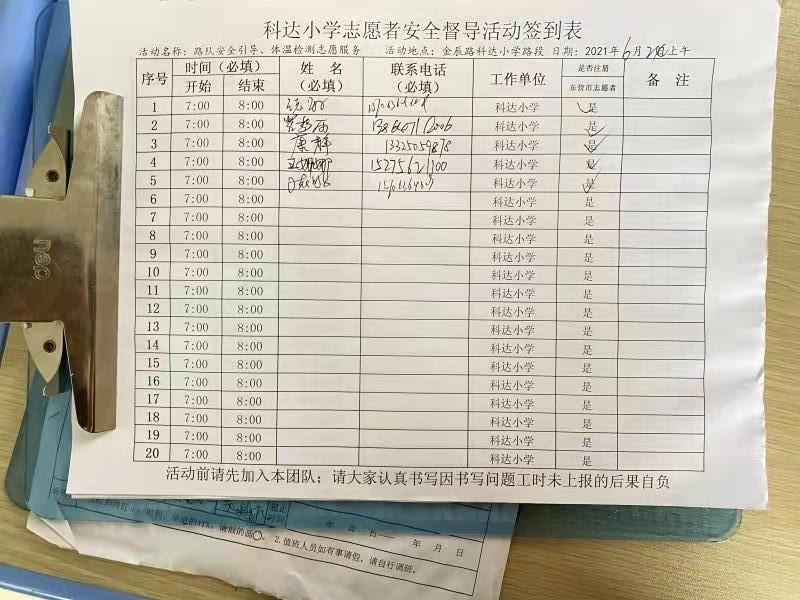 科达小学志愿者安全督导活动签到表
活动名称：路队安全引导、体温检测志愿服务 活动地点：金辰路科达小学路段 日期：2021年6月2日上午
序号 时间（必填） 姓 名（必填） 联系电话（必填） 工作单位 是否注册东营市志愿者 备 注
开始 结束
1 7:00 8:00 科达小学 是
2 7:00 8:00 科达小学 是
3 7:00 8:00 康静 13325059878 科达小学 是
4 7:00 8:00 15275621100 科达小学 是
5 7:00 8:00 科达小学 是
6 7:00 8:00 科达小学 是
7 7:00 8:00 科达小学 是
8 7:00 8:00 科达小学 是
9 7:00 8:00 科达小学 是
10 7:00 8:00 科达小学 是
11 7:00 8:00 科达小学 是
12 7:00 8:00 科达小学 是
13 7:00 8:00 科达小学 是
14 7:00 8:00 科达小学 是
15 7:00 8:00 科达小学 是
16 7:00 8:00 科达小学 是
17 7:00 8:00 科达小学 是
18 7:00 8:00 科达小学 是
19 7:00 8:00 科达小学 是
20 7:00 8:00 科达小学 是
活动前请先加入本团队；请大家认真书写因书写问题工时未上报的后果自负
起止时间 年 月 日— 年 月 日
2.值班人员如有事请假，请自行调班。
deli